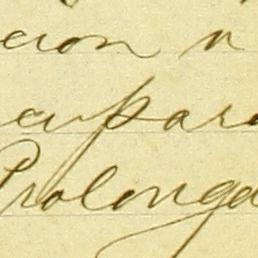 cion n
cupar
Prolonga